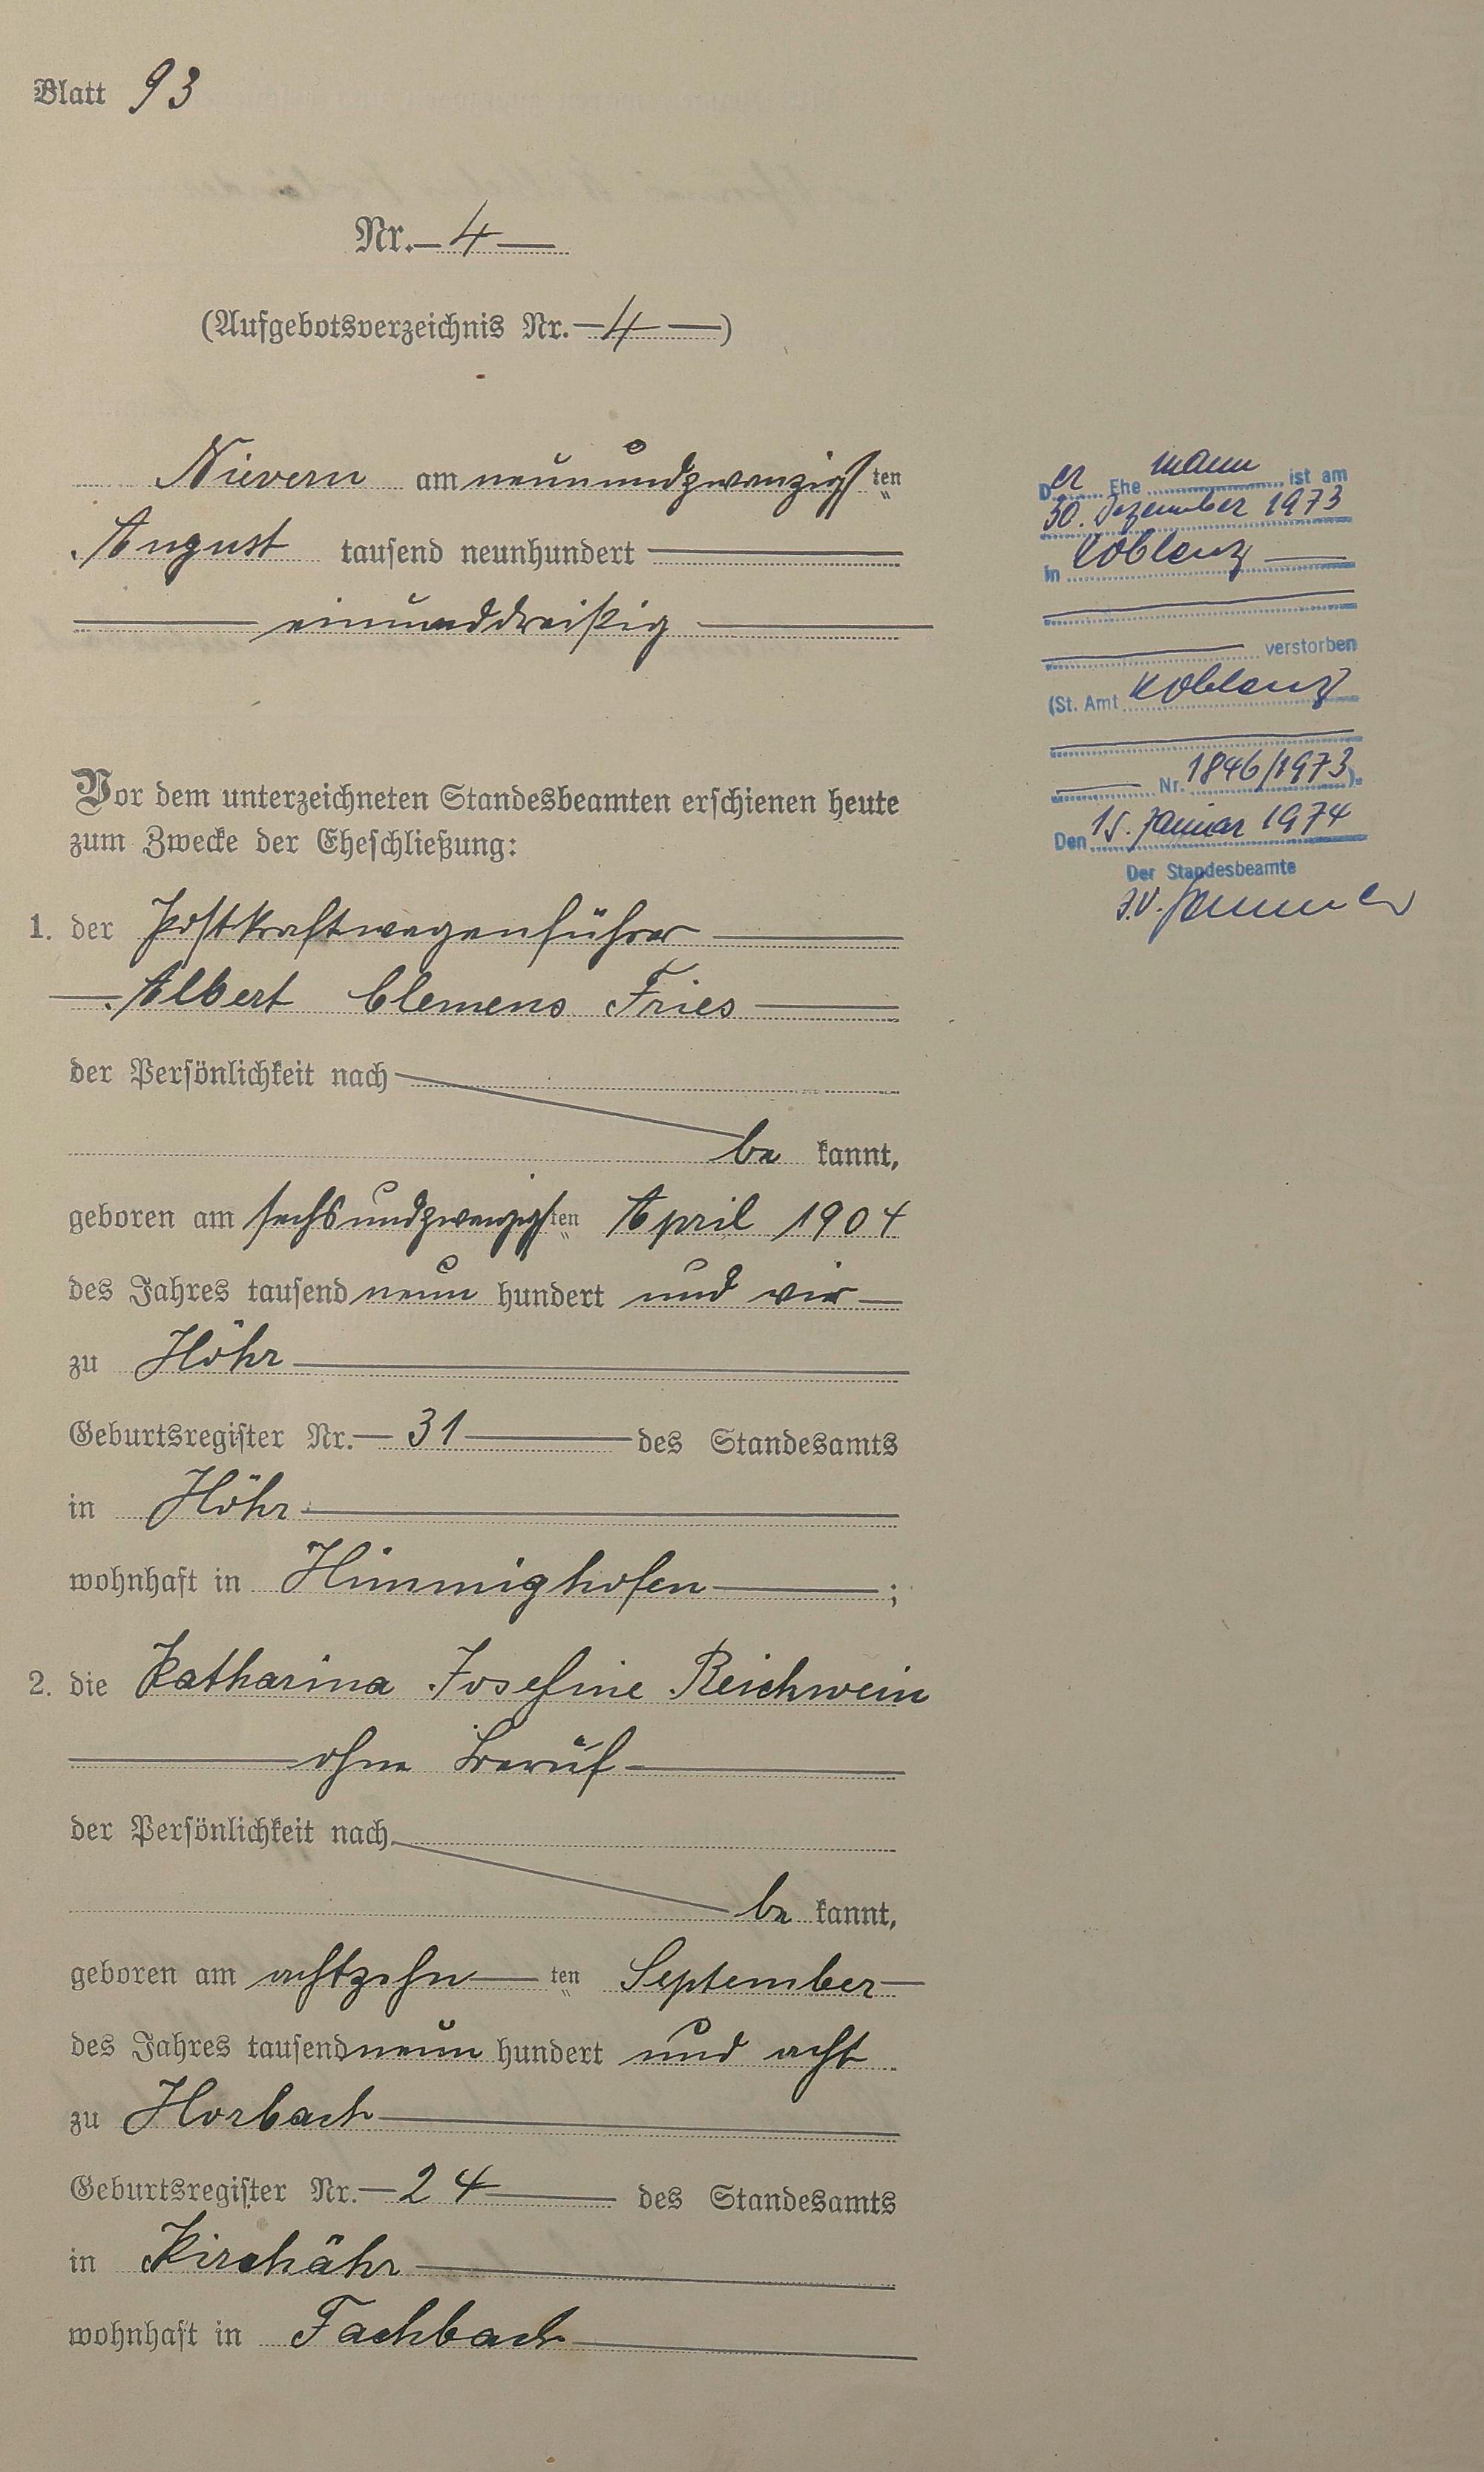 Blatt 93
Nr. 4
(Aufgebotsverzeichnis Nr. 4)
Nievern am neunundzwanzigsten
August tausend neunhundert
einunddreißig
Vor dem unterzeichneten Standesbeamten erschienen heute
zum Zwecke der Eheschließung:
1. der Postkraftwagenführer
Albert Clemens Fries
der Persönlichkeit nach
be kannt,
geboren am sechsundzwanzigsten April 1904
des Jahres tausend neun hundert und vier
zu Höhr
Geburtsregister Nr. 31 des Standesamts
in Höhr
wohnhaft in Himmighofen ;
2. die Katharina Josefine Reichwein
ohne Beruf
der Persönlichkeit nach
be kannt,
geboren am achtzehn ten September
des Jahres tausend neun hundert und acht
zu Horbach
Geburtsregister Nr. 24 des Standesamts
in Kirchähr
wohnhaft in Fachbach
Der Ehemann ist am
30. Dezember 1973
in Koblenz
verstorben
(St. Amt Koblenz
Nr. 1846/1973).
Den 15. Januar 1974
Der Standesbeamte
J.V.